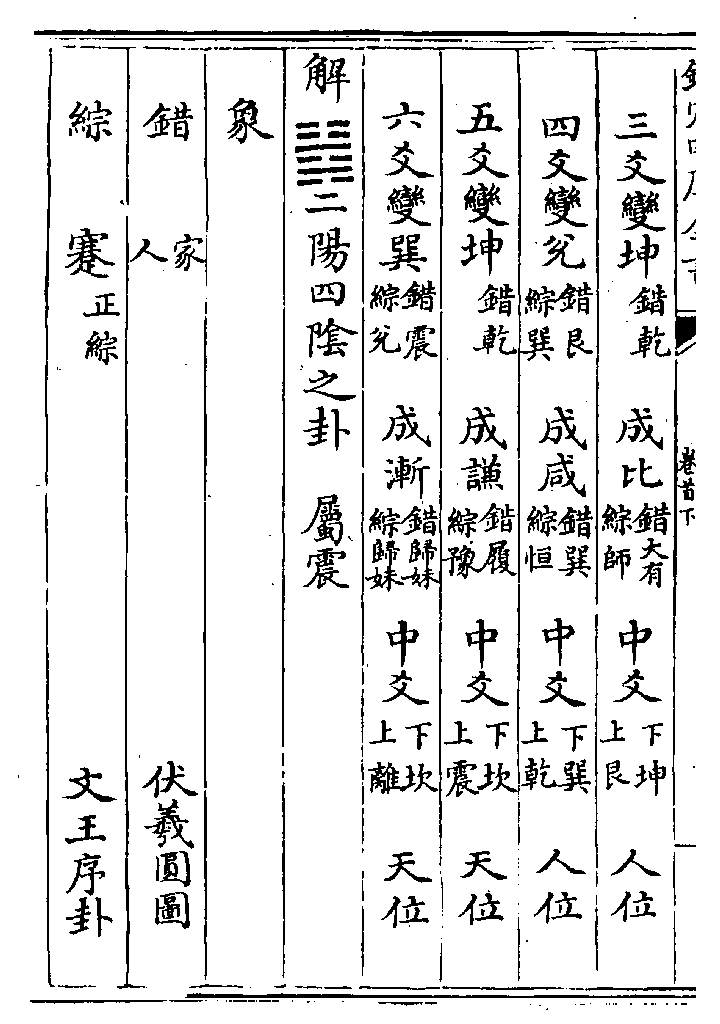 欽定四庫全書
卷首下
三爻變坤錯乾 成比錯大有綜師 中爻下坤上艮 人位
四爻變兌錯艮綜巽 成咸錯巽綜恒 中爻下巽上乾 人位
五爻變坤錯乾 成謙錯履綜豫 中爻下坎上震 天位
六爻變巽錯震綜兌 成漸錯歸妹綜歸妹 中爻下坎上離 天位
解䷧二陽四陰之卦 屬震
象
錯 家人 伏羲圓圖
綜 蹇正綜 文王序卦